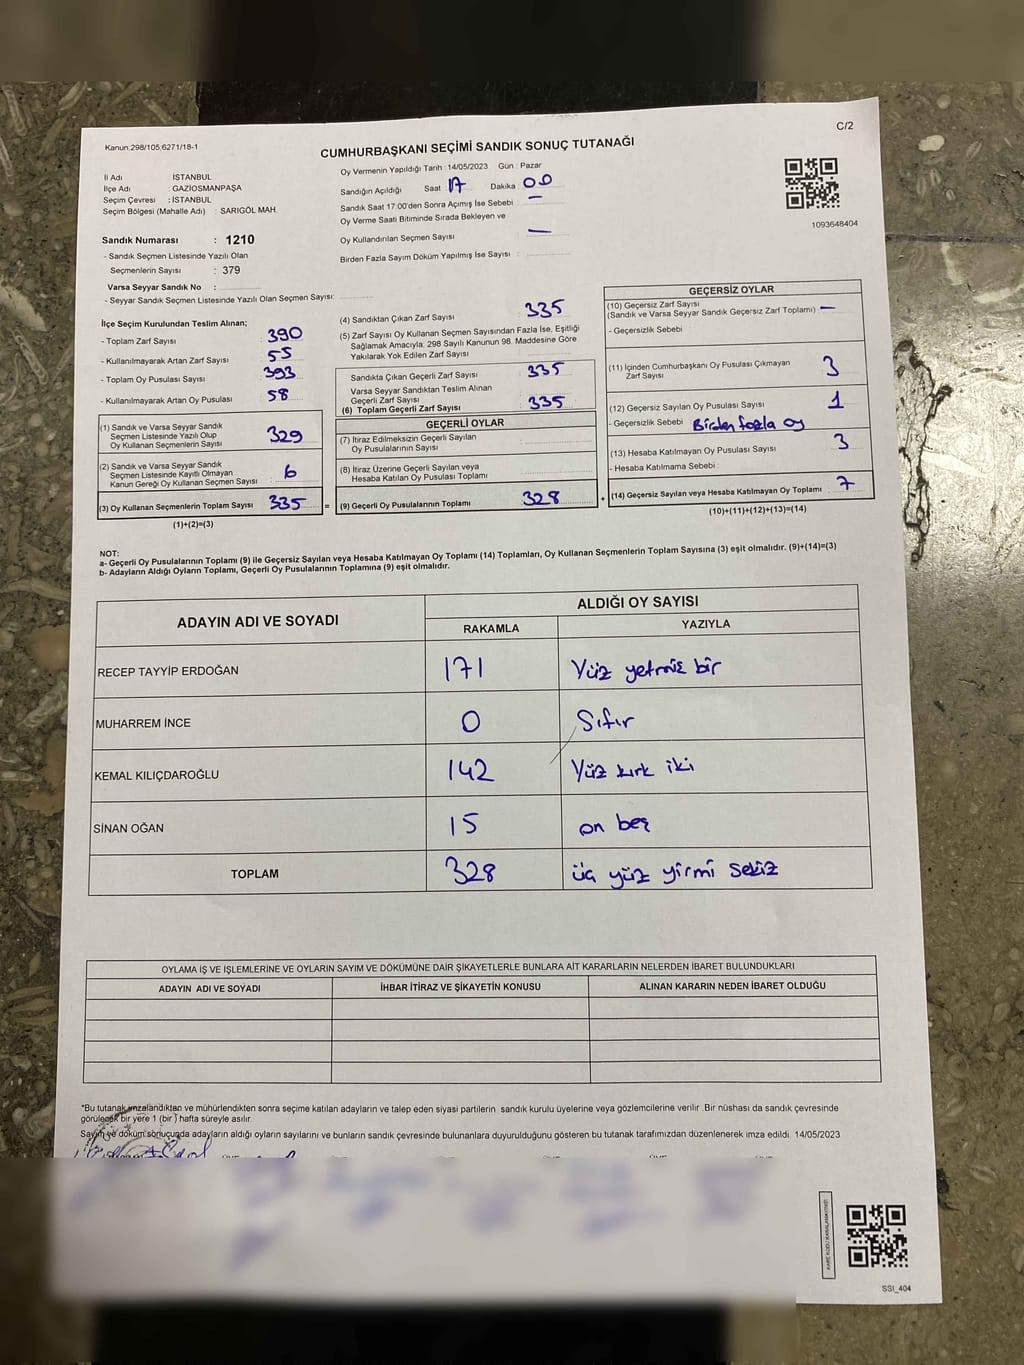 Kanun:298/105,6271/18-1
C/2
CUMHURBAŞKANI SEÇİMİ SANDIK SONUÇ TUTANAĞI
İl Adı : İSTANBUL
İlçe Adı : GAZİOSMANPAŞA
Seçim Çevresi : İSTANBUL
Seçim Bölgesi (Mahalle Adı) : SARIGÖL MAH.
Sandık Numarası : 1210
- Sandık Seçmen Listesinde Yazılı Olan
Seçmenlerin Sayısı : 379
Varsa Seyyar Sandık No :
- Seyyar Sandık Seçmen Listesinde Yazılı Olan Seçmen Sayısı:
Oy Vermenin Yapıldığı Tarih : 14/05/2023 Gün : Pazar
Sandığın Açıldığı Saat 17 Dakika 00
Sandık Saat 17:00'den Sonra Açımış İse Sebebi : —
Oy Verme Saati Bitiminde Sırada Bekleyen ve
Oy Kullandırılan Seçmen Sayısı —
Birden Fazla Sayım Döküm Yapılmış İse Sayısı :
1093648404
İlçe Seçim Kurulundan Teslim Alınan;
- Toplam Zarf Sayısı : 390
- Kullanılmayarak Artan Zarf Sayısı : 55
- Toplam Oy Pusulası Sayısı : 393
- Kullanılmayarak Artan Oy Pusulası : 58
(1) Sandık ve Varsa Seyyar Sandık
Seçmen Listesinde Yazılı Olup
Oy Kullanan Seçmenlerin Sayısı : 329
(2) Sandık ve Varsa Seyyar Sandık
Seçmen Listesinde Kayıtlı Olmayan
Kanun Gereği Oy Kullanan Seçmen Sayısı : 6
(3) Oy Kullanan Seçmenlerin Toplam Sayısı : 335
(1)+(2)=(3)
(4) Sandıktan Çıkan Zarf Sayısı : 335
(5) Zarf Sayısı Oy Kullanan Seçmen Sayısından Fazla İse, Eşitliği
Sağlamak Amacıyla, 298 Sayılı Kanunun 98. Maddesine Göre
Yakılarak Yok Edilen Zarf Sayısı :
Sandıkta Çıkan Geçerli Zarf Sayısı : 335
Varsa Seyyar Sandıktan Teslim Alınan
Geçerli Zarf Sayısı :
(6) Toplam Geçerli Zarf Sayısı : 335
GEÇERLİ OYLAR
(7) İtiraz Edilmeksizin Geçerli Sayılan
Oy Pusulalarının Sayısı :
(8) İtiraz Üzerine Geçerli Sayılan veya
Hesaba Katılan Oy Pusulası Toplamı :
= (9) Geçerli Oy Pusulalarının Toplamı : 328
GEÇERSİZ OYLAR
(10) Geçersiz Zarf Sayısı
(Sandık ve Varsa Seyyar Sandık Geçersiz Zarf Toplamı) —
- Geçersizlik Sebebi :
(11) İçinden Cumhurbaşkanı Oy Pusulası Çıkmayan
Zarf Sayısı : 3
(12) Geçersiz Sayılan Oy Pusulası Sayısı : 1
- Geçersizlik Sebebi : Birden fazla oy
(13) Hesaba Katılmayan Oy Pusulası Sayısı : 3
- Hesaba Katılmama Sebebi :
+ (14) Geçersiz Sayılan veya Hesaba Katılmayan Oy Toplamı : 7
(10)+(11)+(12)+(13)=(14)
NOT:
a- Geçerli Oy Pusulalarının Toplamı (9) ile Geçersiz Sayılan veya Hesaba Katılmayan Oy Toplamı (14) Toplamları, Oy Kullanan Seçmenlerin Toplam Sayısına (3) eşit olmalıdır. (9)+(14)=(3)
b- Adayların Aldığı Oyların Toplamı, Geçerli Oy Pusulalarının Toplamına (9) eşit olmalıdır.
ADAYIN ADI VE SOYADI
ALDIĞI OY SAYISI
RAKAMLA YAZIYLA
RECEP TAYYİP ERDOĞAN 171 Yüz yetmiş bir
MUHARREM İNCE 0 Sıfır
KEMAL KILIÇDAROĞLU 142 Yüz kırk iki
SİNAN OĞAN 15 on beş
TOPLAM 328 üç yüz yirmi sekiz
OYLAMA İŞ VE İŞLEMLERİNE VE OYLARIN SAYIM VE DÖKÜMÜNE DAİR ŞİKAYETLERLE BUNLARA AİT KARARLARIN NELERDEN İBARET BULUNDUKLARI
ADAYIN ADI VE SOYADI İHBAR İTİRAZ VE ŞİKAYETİN KONUSU ALINAN KARARIN NEDEN İBARET OLDUĞU
*Bu tutanak imzalandıktan ve mühürlendikten sonra seçime katılan adayların ve talep eden siyasi partilerin sandık kurulu üyelerine veya gözlemcilerine verilir. Bir nüshası da sandık çevresinde
görülecek bir yere 1 (bir ) hafta süreyle asılır.
Sayım ve döküm sonucunda adayların aldığı oyların sayılarını ve bunların sandık çevresinde bulunanlara duyurulduğunu gösteren bu tutanak tarafımızdan düzenlenerek imza edildi. 14/05/2023
SSI_404